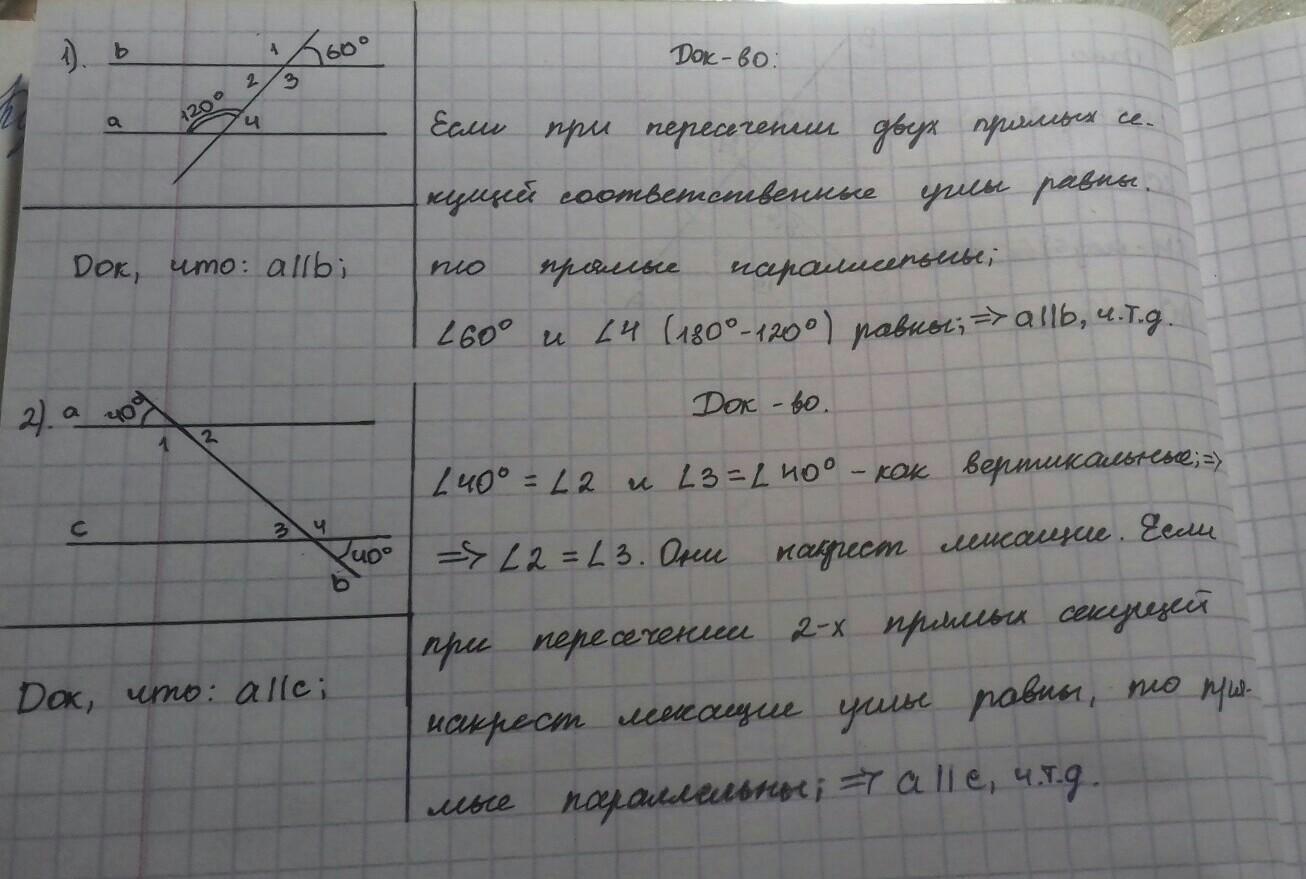 1). b 1 60°
2 3
120°
a 4
Док, что: a||b;
Док-во:
Если при пересечении двух прямых се-
кущей соответственные углы равны.
то прямые параллельны;
∠60° и ∠4 (180°-120°) равны; => a||b, ч.т.д.
2). a 40°
1 2
c 3 4
40°
b
Док, что: a||c;
Док-во.
∠40° = ∠2 и ∠3 = ∠40° - как вертикальные; =>
=> ∠2 = ∠3. Они накрест лежащие. Если
при пересечении 2-х прямых секущей
накрест лежащие углы равны, то пря-
мые параллельны; => a||c, ч.т.д.